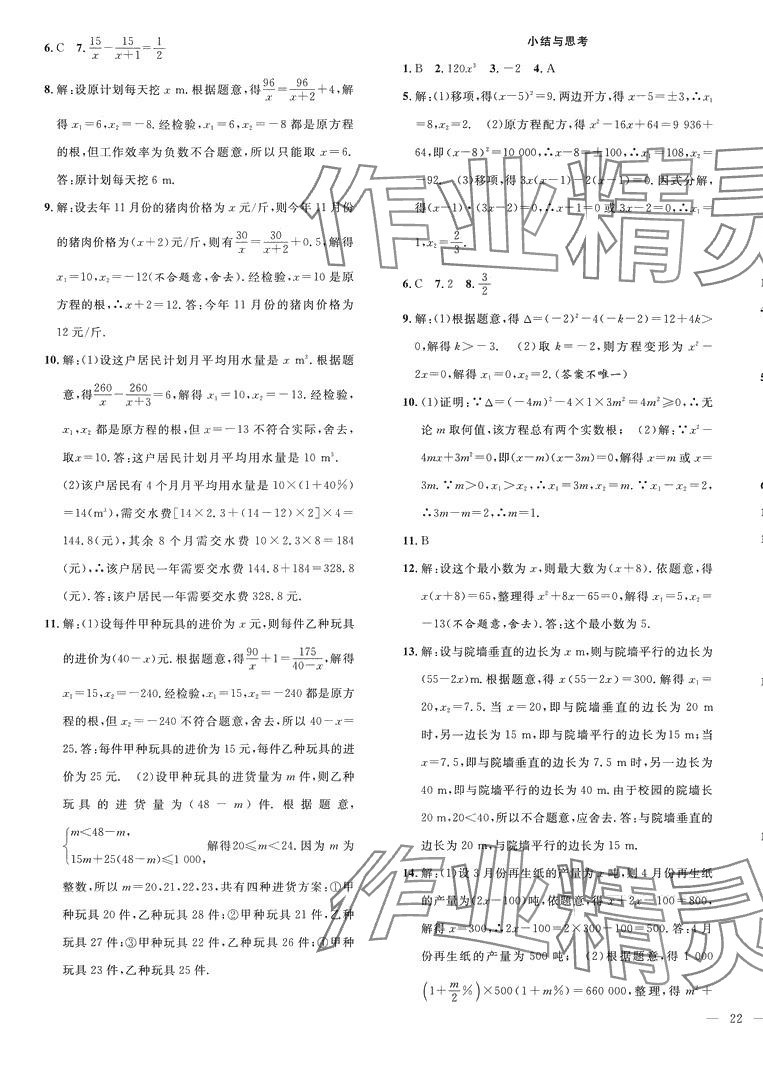 6. C 7. 15/x－15/(x＋1)＝1/2
8. 解:设原计划每天挖 x m. 根据题意,得96/x＝96/(x＋2)＋4,解
得 x₁＝6,x₂＝－8. 经检验,x₁＝6,x₂＝－8 都是原方程
的根,但工作效率为负数不合题意,所以只能取 x＝6.
答:原计划每天挖 6 m.
9. 解:设去年 11 月份的猪肉价格为 x 元/斤,则今年 11 月份
的猪肉价格为(x＋2)元/斤,则有30/x＝30/(x＋2)＋0.5,解得
x₁＝10,x₂＝－12(不合题意,舍去). 经检验,x＝10 是原
方程的根,∴x＋2＝12. 答:今年 11 月份的猪肉价格为
12 元/斤.
10. 解:(1)设这户居民计划月平均用水量是 x m³. 根据题
意,得260/x－260/(x＋3)＝6,解得 x₁＝10,x₂＝－13. 经检验,
x₁,x₂ 都是原方程的根,但 x＝－13 不符合实际,舍去,
取x＝10. 答:这户居民计划月平均用水量是 10 m³.
(2)该户居民有 4 个月月平均用水量是 10×(1＋40%)
＝14(m³),需交水费[14×2.3＋(14－12)×2]×4＝
144.8(元),其余 8 个月需交水费 10×2.3×8＝184
(元),∴该户居民一年需要交水费 144.8＋184＝328.8
(元). 答:该户居民一年需要交水费 328.8 元.
11. 解:(1)设每件甲种玩具的进价为 x 元,则每件乙种玩具
的进价为(40－x)元. 根据题意,得90/x＋1＝175/(40－x),解得
x₁＝15,x₂＝－240. 经检验,x₁＝15,x₂＝－240 都是原
方程的根,但 x₂＝－240 不符合题意,舍去,所以 40－x＝
25. 答:每件甲种玩具的进价为 15 元,每件乙种玩具的进
价为 25 元. (2)设甲种玩具的进货量为 m 件,则乙种
玩具的进货量为(48－m)件. 根据题意,
{m＜48－m, 15m＋25(48－m)≤1 000, 解得20≤m＜24. 因为 m 为
整数,所以 m＝20,21,22,23,共有四种进货方案:①甲
种玩具 20 件,乙种玩具 28 件;②甲种玩具 21 件,乙种
玩具 27 件;③甲种玩具 22 件,乙种玩具 26 件;④甲种
玩具 23 件,乙种玩具 25 件.
小结与思考
1. B 2. 120x³ 3. －2 4. A
5. 解:(1)移项,得(x－5)²＝9. 两边开方,得 x－5＝±3,∴x₁
＝8,x₂＝2. (2)原方程配方,得 x²－16x＋64＝9 936＋
64,即(x－8)²＝10 000,∴x－8＝±100,∴x₁＝108,x₂＝
－92. (3)移项,得 3x(x－1)－2(x－1)＝0. 因式分解,
得(x－1)·(3x－2)＝0,∴x－1＝0 或3x－2＝0,∴x₁＝
1,x₂＝2/3.
6. C 7. 2 8. 3/2
9. 解:(1)根据题意,得 Δ＝(－2)²－4(－k－2)＝12＋4k＞
0,解得 k＞－3. (2)取 k＝－2,则方程变形为 x²－
2x＝0,解得 x₁＝0,x₂＝2. (答案不唯一)
10. (1)证明:∵Δ＝(－4m)²－4×1×3m²＝4m²≥0,∴无
论 m 取何值,该方程总有两个实数根; (2)解:∵x²－
4mx＋3m²＝0,即(x－m)(x－3m)＝0,解得 x＝m 或 x＝
3m. ∵m＞0,x₁＞x₂,∴x₁＝3m,x₂＝m. ∵x₁－x₂＝2,
∴3m－m＝2,∴m＝1.
11. B
12. 解:设这个最小数为 x,则最大数为(x＋8). 依题意,得
x(x＋8)＝65,整理得 x²＋8x－65＝0,解得 x₁＝5,x₂＝
－13(不合题意,舍去). 答:这个最小数为 5.
13. 解:设与院墙垂直的边长为 x m,则与院墙平行的边长为
(55－2x)m. 根据题意,得 x(55－2x)＝300. 解得 x₁＝
20,x₂＝7.5. 当 x＝20,即与院墙垂直的边长为 20 m
时,另一边长为 15 m,即与院墙平行的边长为 15 m;当
x＝7.5,即与院墙垂直的边长为 7.5 m 时,另一边长为
40 m,即与院墙平行的边长为 40 m. 由于校园的院墙长
20 m,20＜40,所以不合题意,应舍去. 答:与院墙垂直的
边长为 20 m,与院墙平行的边长为 15 m.
14. 解:(1)设 3 月份再生纸的产量为 x 吨,则 4 月份再生纸
的产量为(2x－100)吨,依题意,得 x＋2x－100＝800,
解得 x＝300,∴2x－100＝2×300－100＝500. 答:4 月
份再生纸的产量为 500 吨; (2)根据题意,得 1 000
(1＋m/2%)×500(1＋m%)＝660 000,整理,得 m²＋
— 22 —
作业精灵
作业精灵